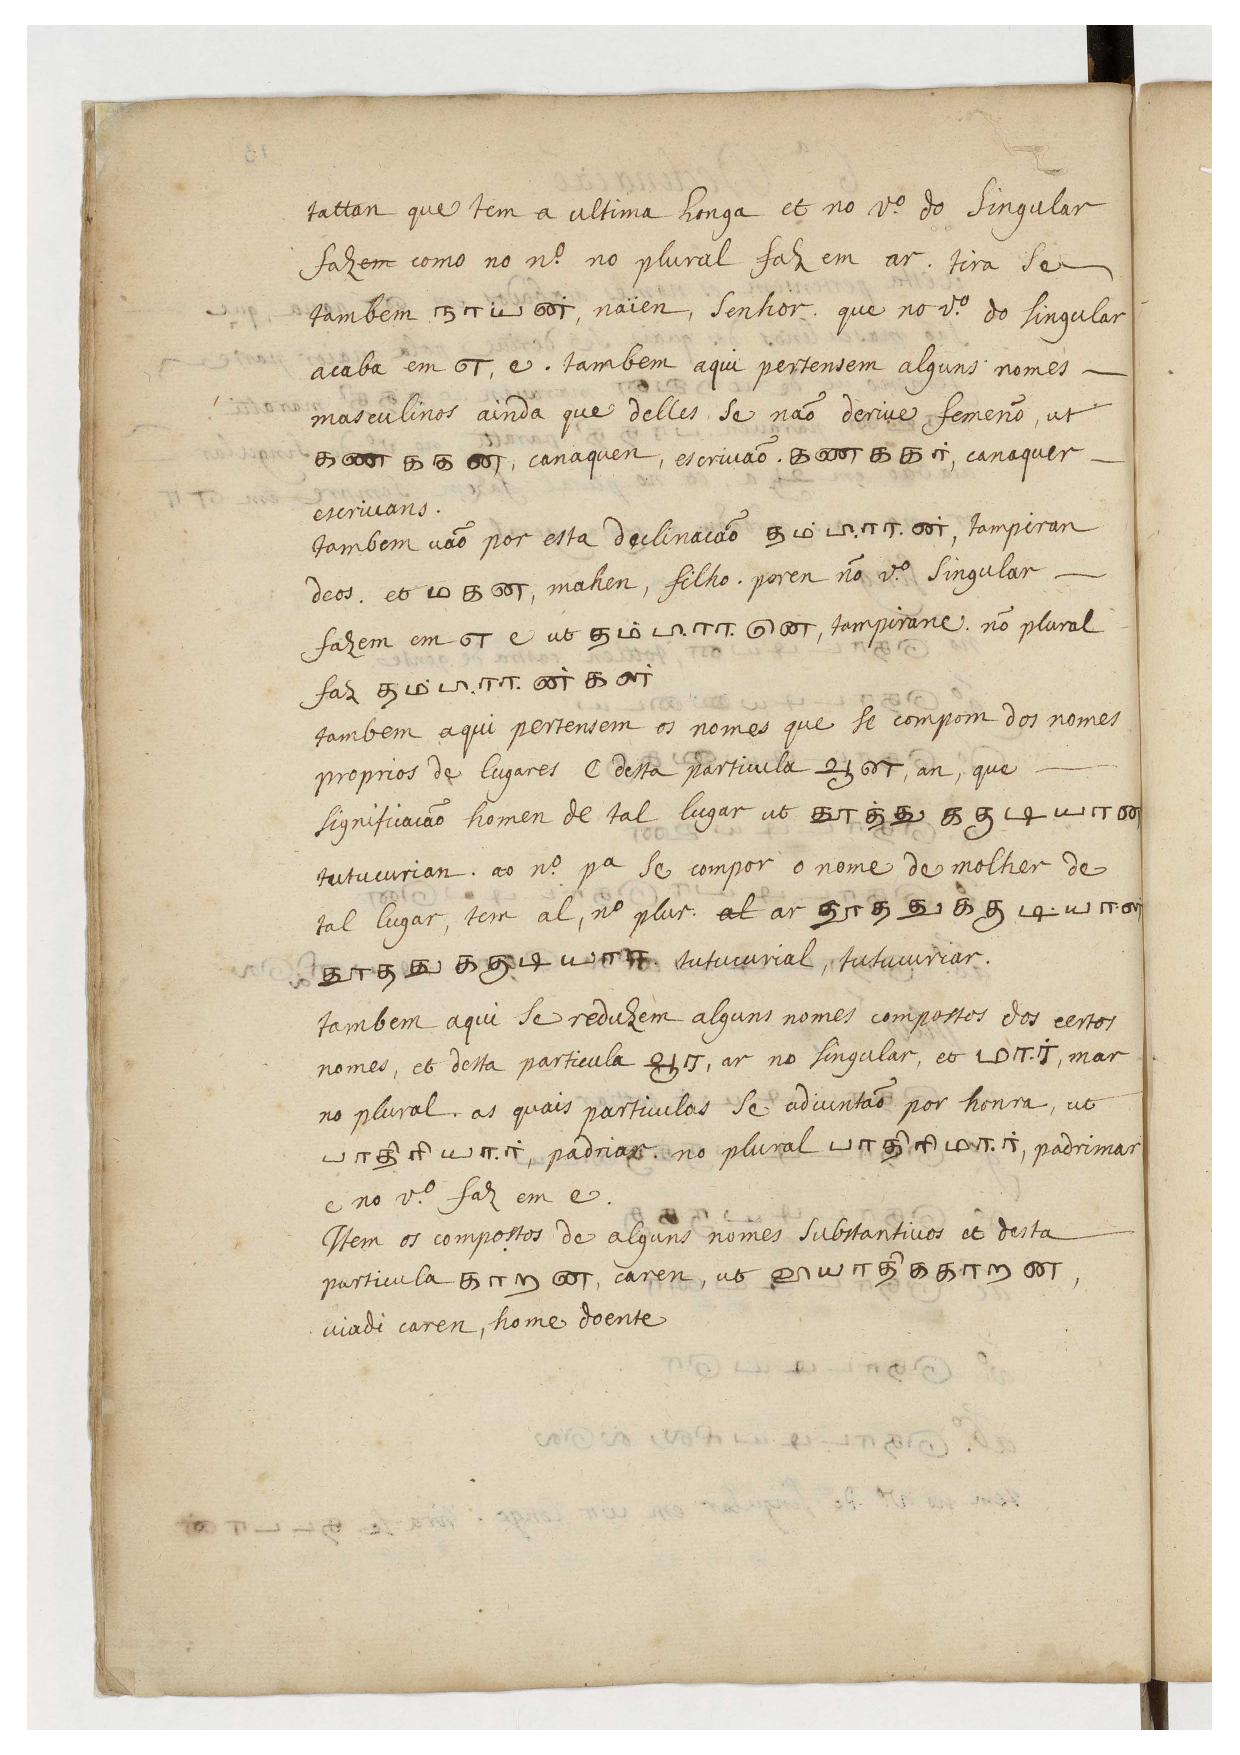 tattan que tem a ultima longa et no vº. do Singular
fazem como no nº. no plural faz em ar. tira Se
tambem நாயன், naïen, Senhor. que no vº. do singular
acaba em எ, e. tambem aqui pertensem alguns nomes
masculinos ainda que delles Se não derive femenõ, ut
கணககன், canaquen, escrivaõ. கணககர், canaquer
escrivans.
tambem vaõ por esta declinacaõ தம்பிரான், tampiran
deos. et மகன, mahen, filho. poren nõ vº. Singular
fazem em எ e ut தம்பிரானெ, tampirane. nõ plural
faz தம்பிரான்கள்
tambem aqui pertensem os nomes que se compom dos nomes
proprios de lugares e desta particula ஆன, an, que
significacaõ homen de tal lugar ut தூத்துககுடியான
tutucurian. ao nº. pª se compor o nome de molher de
tal lugar, tem al, nº plur. al ar தூததுககுடியாள
தூததுககுடியார. tutucurial, tutucuriar.
tambem aqui se reduzem alguns nomes compostos dos certos
nomes, et desta particula ஆர, ar no singular, et மார், mar
no plural. as quais particulas Se adiuntaõ por honra, ut
பாதிரியார், padriar. no plural பாதிரிமார், padrimar
e no vº. faz em e.
Item os compostos de alguns nomes substantivos et desta
particula காறன, caren, ut வியாதிககாறன,
viadi caren, home doente